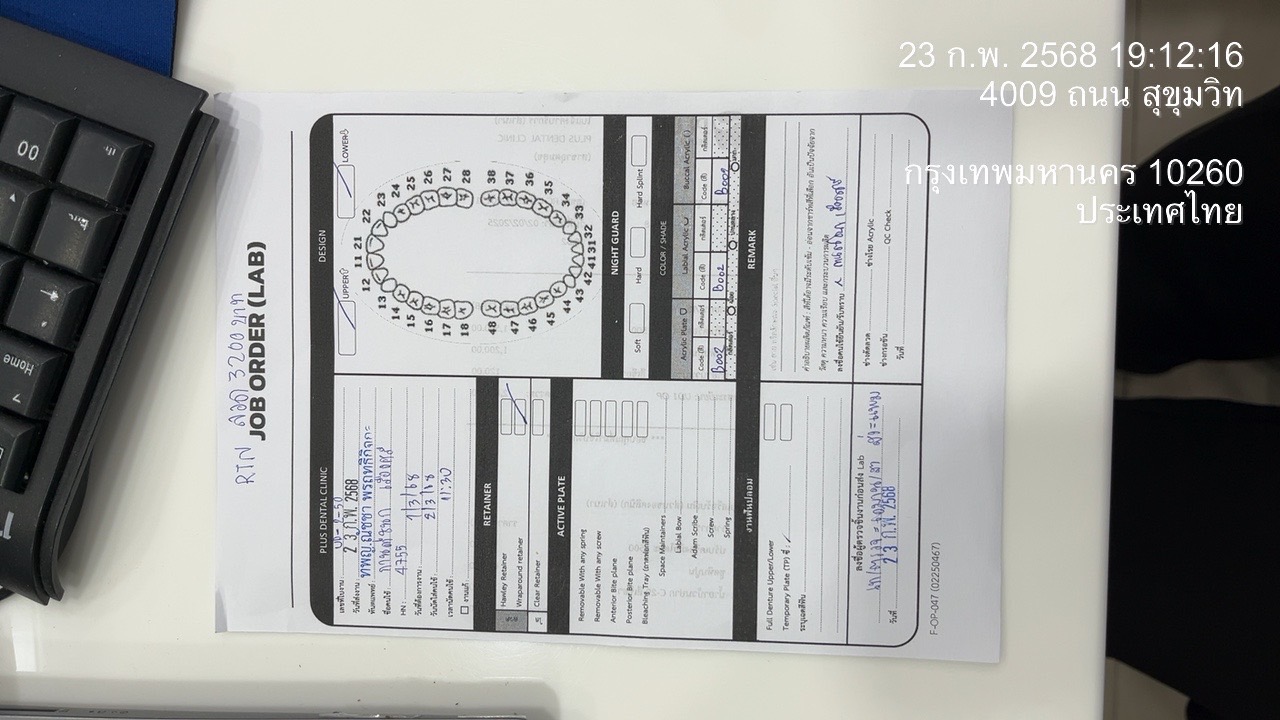 Home
7
00
RTN ลวด 3200 บาท
JOB ORDER (LAB)
PLUS DENTAL CLINIC
เลขที่ใบงาน : UD-2-50
วันที่ส่งงาน : 2 3 ก.พ. 2568
ทันตแพทย์ : ทพญ.ณัชชา พรฤทธิกิจกะ
ชื่อคนไข้ :
HN : 4755
วันที่ต้องการงาน : 1/3/68
วันนัดใส่คนไข้ : 2/3/68
เวลานัดคนไข้ : 11:30
งานแก้ :
RETAINER
ลวด
Hawley Retainer
Wraparound retainer
ใส
Clear Retainer
ACTIVE PLATE
Removable With any spring
Removable With any screw
Anterior Bite plane
Posterior Bite plane
Bleaching Tray (ถาดฟอกสีฟัน)
Space Maintainers
Labial Bow
Adam Scribe
Screw
Spring
งานฟันปลอม
Full Denture Upper/Lower
Temporary Plate (TP) ซี่ :
ระบุเฉดสีฟัน
ลงชื่อผู้ตรวจชิ้นงานก่อนส่ง Lab
วันที่ 2 3 ก.พ. 2568
DESIGN
UPPER
LOWER
11 21
12 22
13 23
14 24
15 25
16 26
17 27
18 28
48 38
47 37
46 36
45 35
44 34
43 33
42 41 31 32
NIGHT GUARD
Soft Hard Hard Splint
COLOR / SHADE
Acrylic Plate Labial Acrylic Buccal Acrylic
Code (สี) กลิตเตอร์ Code (สี) กลิตเตอร์ Code (สี) กลิตเตอร์
B002 B002 B002
กลิตเตอร์ น้อย ปานกลาง มาก
REMARK
คำอธิบายผลิตภัณฑ์ : สีที่ได้อาจมีระดับเข้ม - อ่อนจากชาร์ทสีที่เลือก อันเป็นปัจจัยจาก
วัสดุ ความหนา ความเรียบ และกระบวนการผลิต
ลงชื่อคนไข้ยืนยัน/รับทราบ
ช่างดัดลวด ช่างโรย Acrylic
ช่างกรอขัด QC Check
วันที่
F-OP-047 (02250467)
23 ก.พ. 2568 19:12:16
4009 ถนน สุขุมวิท
กรุงเทพมหานคร 10260
ประเทศไทย